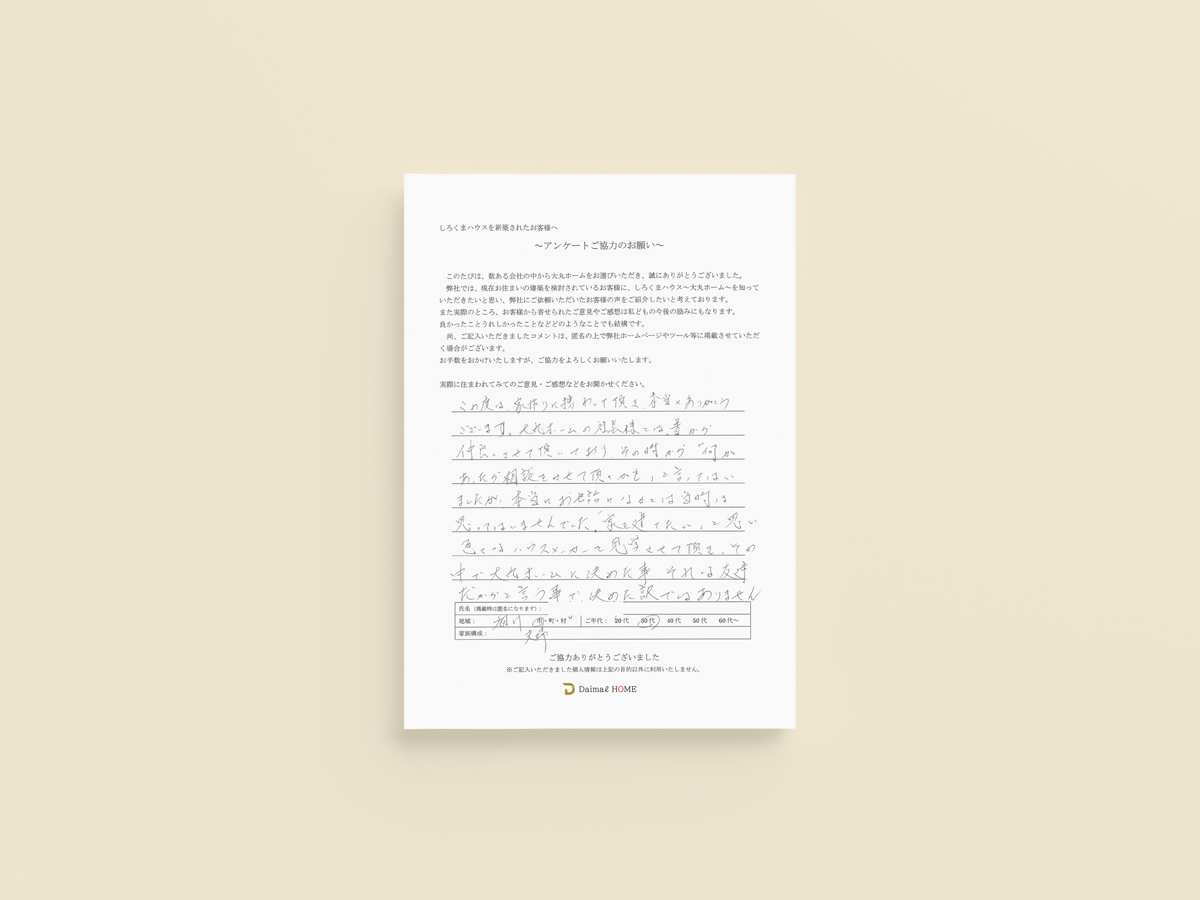 しろくまハウスを新築されたお客様へ
～アンケートご協力のお願い～
このたびは、数ある会社の中から大丸ホームをお選びいただき、誠にありがとうございました。
弊社では、現在お住まいの建築を検討されているお客様に、しろくまハウス～大丸ホーム～を知って
いただきたいと思い、弊社にご依頼いただいたお客様の声をご紹介したいと考えております。
また実際のところ、お客様から寄せられたご意見やご感想は私どもの今後の励みにもなります。
良かったことうれしかったことなどどのようなことでも結構です。
尚、ご記入いただきましたコメントは、匿名の上で弊社ホームページやツール等に掲載させていただ
く場合がございます。
お手数をおかけいたしますが、ご協力をよろしくお願いいたします。
実際に住まわれてみてのご意見・ご感想などをお聞かせください。
この度は、家作りに携わって頂き、本当にありがとう
ございます。大丸ホームの店長様とは、昔から
仲良くさせて頂いており、その時から「何か
あったら相談をさせて頂くかも」と言ってはい
ましたが、本当にお世話になるとは当時は
思ってはいませんでした。「家を建てたい」と思い
色々なハウスメーカーを見学させて頂き、その
中で大丸ホームに決めた事、それは友達
だからと言う事で、決めた訳ではありません
氏名（掲載時は匿名になります）：
地域： 旭川 市・町・村 ご年代： 20代 30代 40代 50代 60代～
家族構成： 夫婦
ご協力ありがとうございました
※ご記入いただきました個人情報は上記の目的以外に利用いたしません。
Daimaℓ HOME